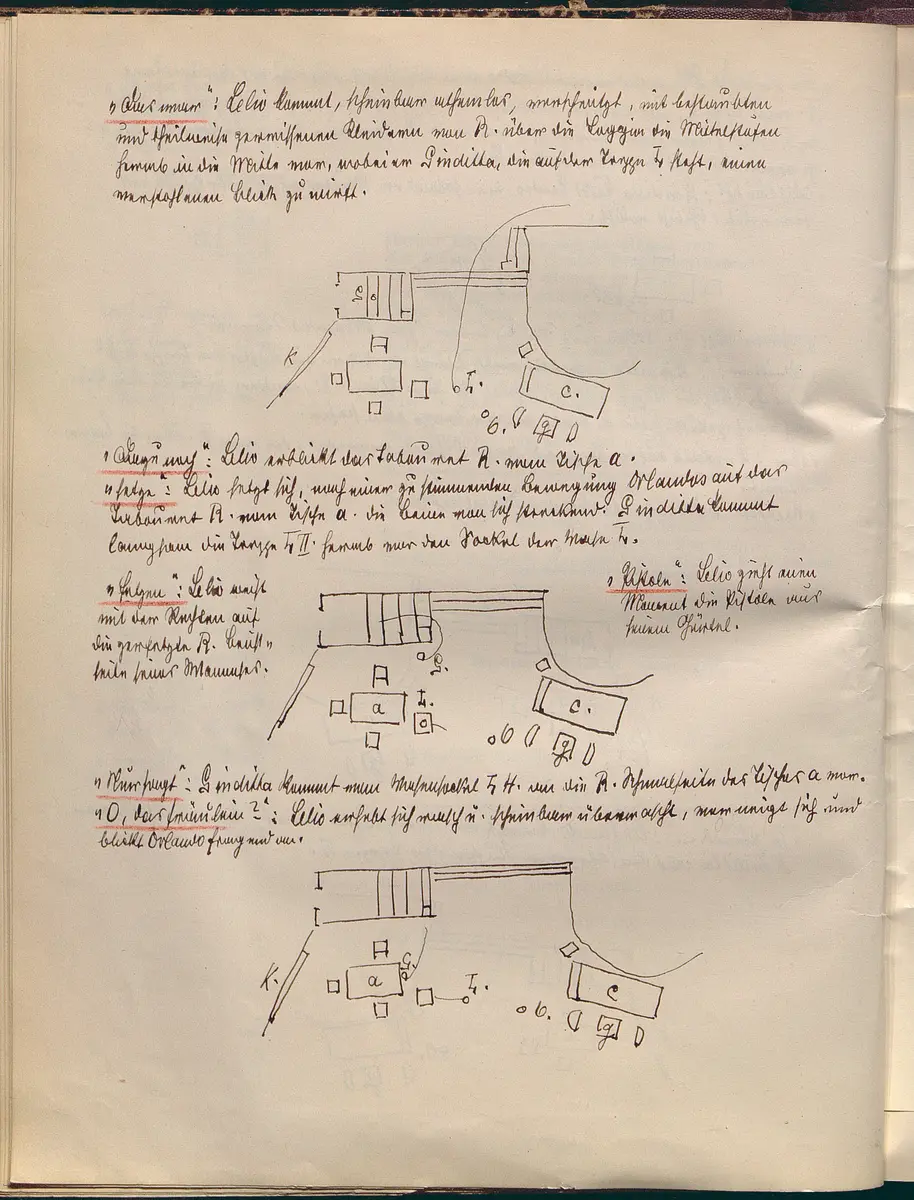 „Das war“: Lelio kommt, scheinbar athemlos, mit bestaubten
und theilweise zerrissenen Kleidern von R. über die Loggia die Mittelstufen
herab in die Mitte vor, wobei er Ginditta, die auf der Treppe L steht, einen
verstohlenen Blick zu wirft.
G
K
L.
O.
g
c.
„Dazu noch“: Lelio erblickt das Tabouret R. vom Tische a.
„setze“: Lelio setzt sich, nach einer zustimmenden Bewegung Orlandos auf das
Tabouret R. vom Tische a. die Beine von sich streckend. Ginditta kommt
langsam die Treppe L II. herab vor den Sockel der Vase L.
„Fetzen“: Lelio weist
mit der Rechten auf
die zerfetzte R. Bein-
teile seines Wamses.
„Pistole“: Lelio zieht einen
Moment die Pistole aus
seinem Gürtel.
G.
a
L.
O
g
c.
„Nur sagt“: Ginditta kommt vom Vasensockel L H. an die R. Schmalseite des Tisches a vor.
„O, das Fräulein?“: Lelio erhebt sich rasch u. scheinbar überrascht, verneigt sich und
blickt Orlando fragend an.
K.
a
G.
L.
O.
g
c